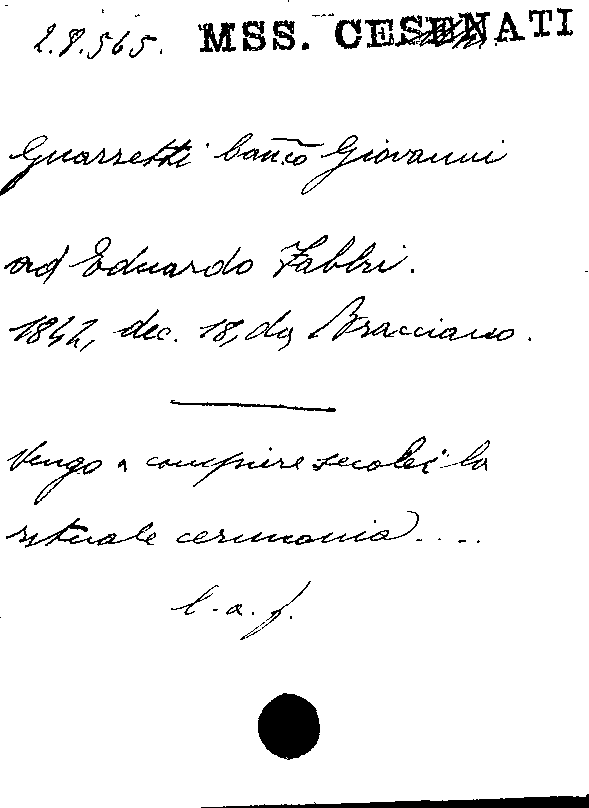 2.8.565. MSS. CESENATI
Guarzetti Giovanni
ad Eduardo Fabbri.
1842, dec. 18, da Bracciano.
Vengo a compiere seco lei la
rituale cerimonia....
l. a. f.